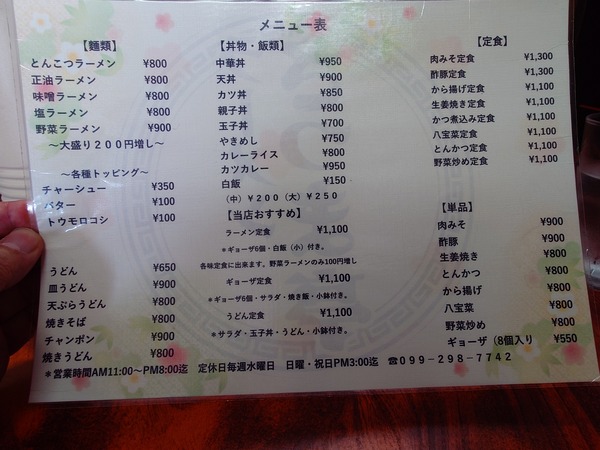 メニュー表
【麺類】
とんこつラーメン ¥800
正油ラーメン ¥800
味噌ラーメン ¥800
塩ラーメン ¥800
野菜ラーメン ¥900
～大盛り２００円増し～
～各種トッピング～
チャーシュー ¥350
バター ¥100
トウモロコシ ¥100
うどん ¥650
皿うどん ¥900
天ぷらうどん ¥800
焼きそば ¥800
チャンポン ¥900
焼きうどん ¥800
【丼物・飯類】
中華丼 ¥950
天丼 ¥900
カツ丼 ¥850
親子丼 ¥800
玉子丼 ¥700
やきめし ¥750
カレーライス ¥800
カツカレー ¥950
白飯 ¥150
（中）￥２００（大）￥２５０
【当店おすすめ】
ラーメン定食 ¥1,100
＊ギョーザ6個・白飯（小）付き。
各味定食に出来ます。野菜ラーメンのみ100円増し
ギョーザ定食 ¥1,100
＊ギョーザ6個・サラダ・焼き飯・小鉢付き。
うどん定食 ¥1,100
＊サラダ・玉子丼・うどん・小鉢付き。
【定食】
肉みそ定食 ¥1,300
酢豚定食 ¥1,300
から揚げ定食 ¥1,100
生姜焼き定食 ¥1,100
かつ煮込み定食 ¥1,100
八宝菜定食 ¥1,100
とんかつ定食 ¥1,100
野菜炒め定食 ¥1,100
【単品】
肉みそ ¥900
酢豚 ¥900
生姜焼き ¥800
とんかつ ¥800
から揚げ ¥800
八宝菜 ¥800
野菜炒め ¥800
ギョーザ（8個入り ¥550
＊営業時間AM11:00～PM8:00迄 定休日毎週水曜日 日曜・祝日PM3:00迄 ☎０９９-２９８-７７４２